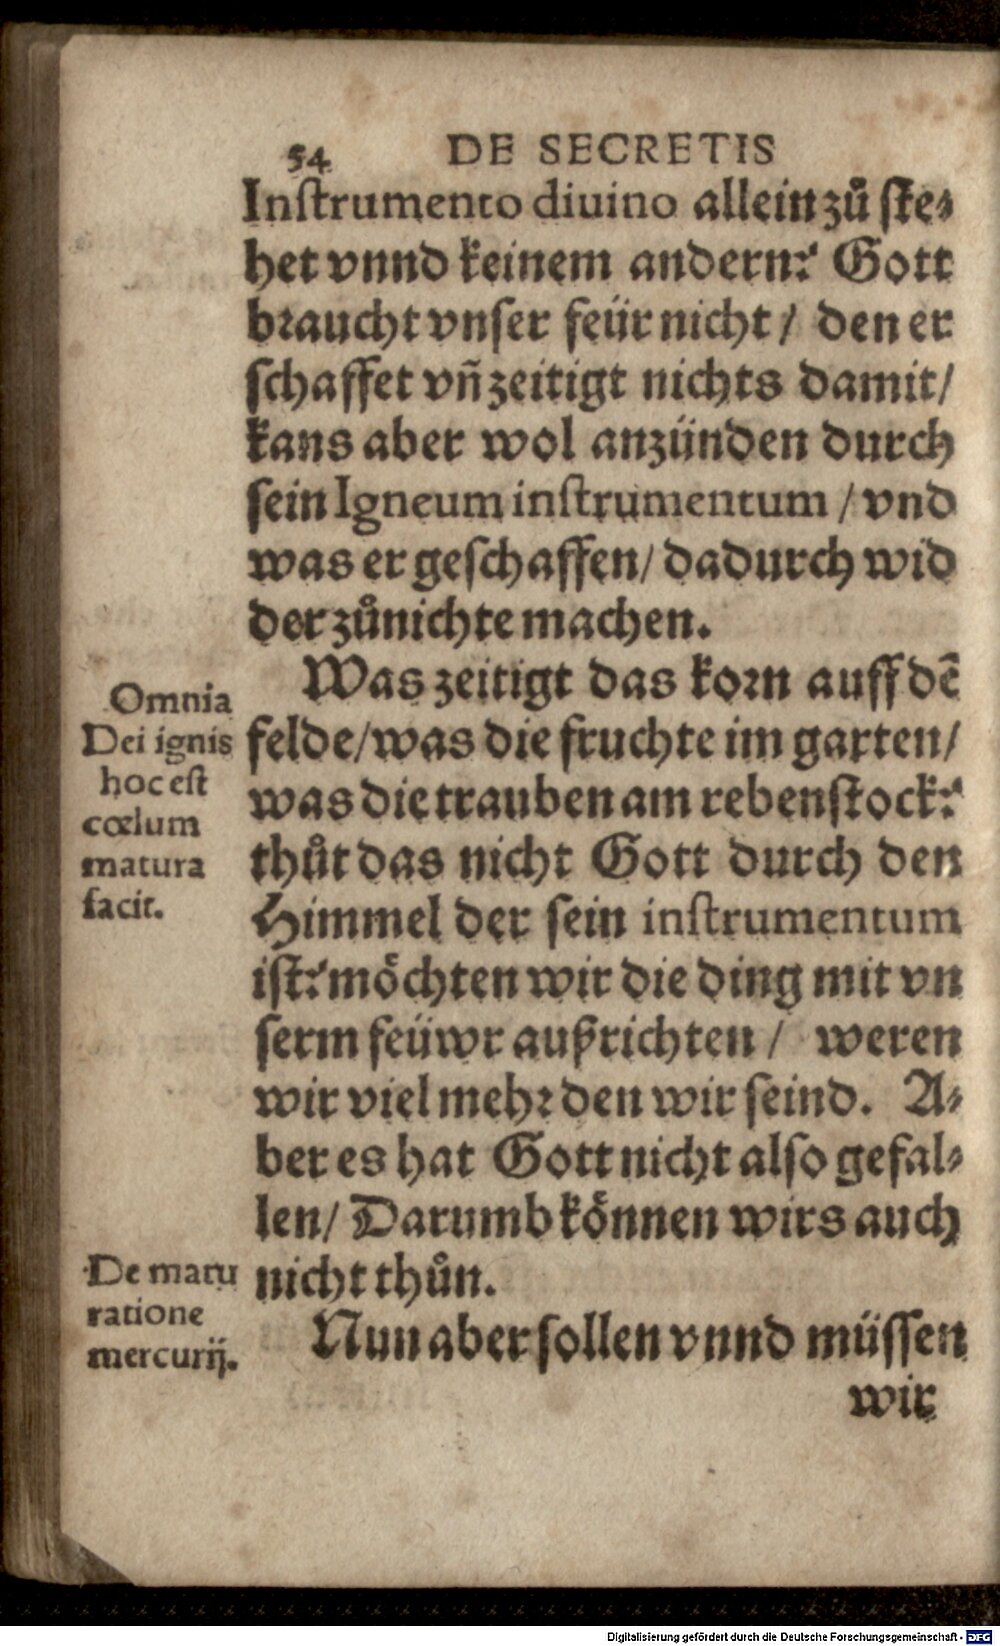 54 DE SECRETIS
Instrumento diuino allein zů ste⸗
het vnnd keinem andern? Gott
braucht vnser feür nicht / den er
schaffet vñ zeitigt nichts damit/
kans aber wol anzünden durch
sein Igneum instrumentum / vnd
was er geschaffen/ dadurch wid
der zůnichte machen.
Was zeitigt das korn auff dē
felde/was die fruchte im garten/
was die trauben am rebenstock?
thůt das nicht Gott durch den
Himmel der sein instrumentum
ist? möchten wir die ding mit vn
serm feüwr außrichten / weren
wir viel mehr den wir seind. A⸗
ber es hat Gott nicht also gefal⸗
len/ Darumb können wirs auch
nicht thůn.
Nun aber sollen vnnd müssen
wir
Omnia
Dei ignis
hoc est
cœlum
matura
facit.
De matu
ratione
mercurij.
Digitalisierung gefördert durch die Deutsche Forschungsgemeinschaft - DFG